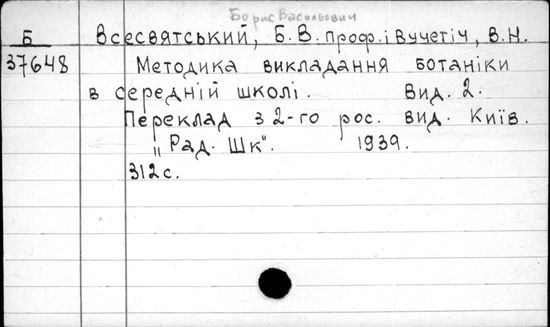 Борис Васильович
Б
Всесвятський, Б. В. проф. і Вучетіч, В. Н.
37648
Методика викладання ботаніки
в середній школі. Вид. 2.
Переклад з 2-го рос. вид. Київ.
„Рад. Шк“. 1939.
312 с.